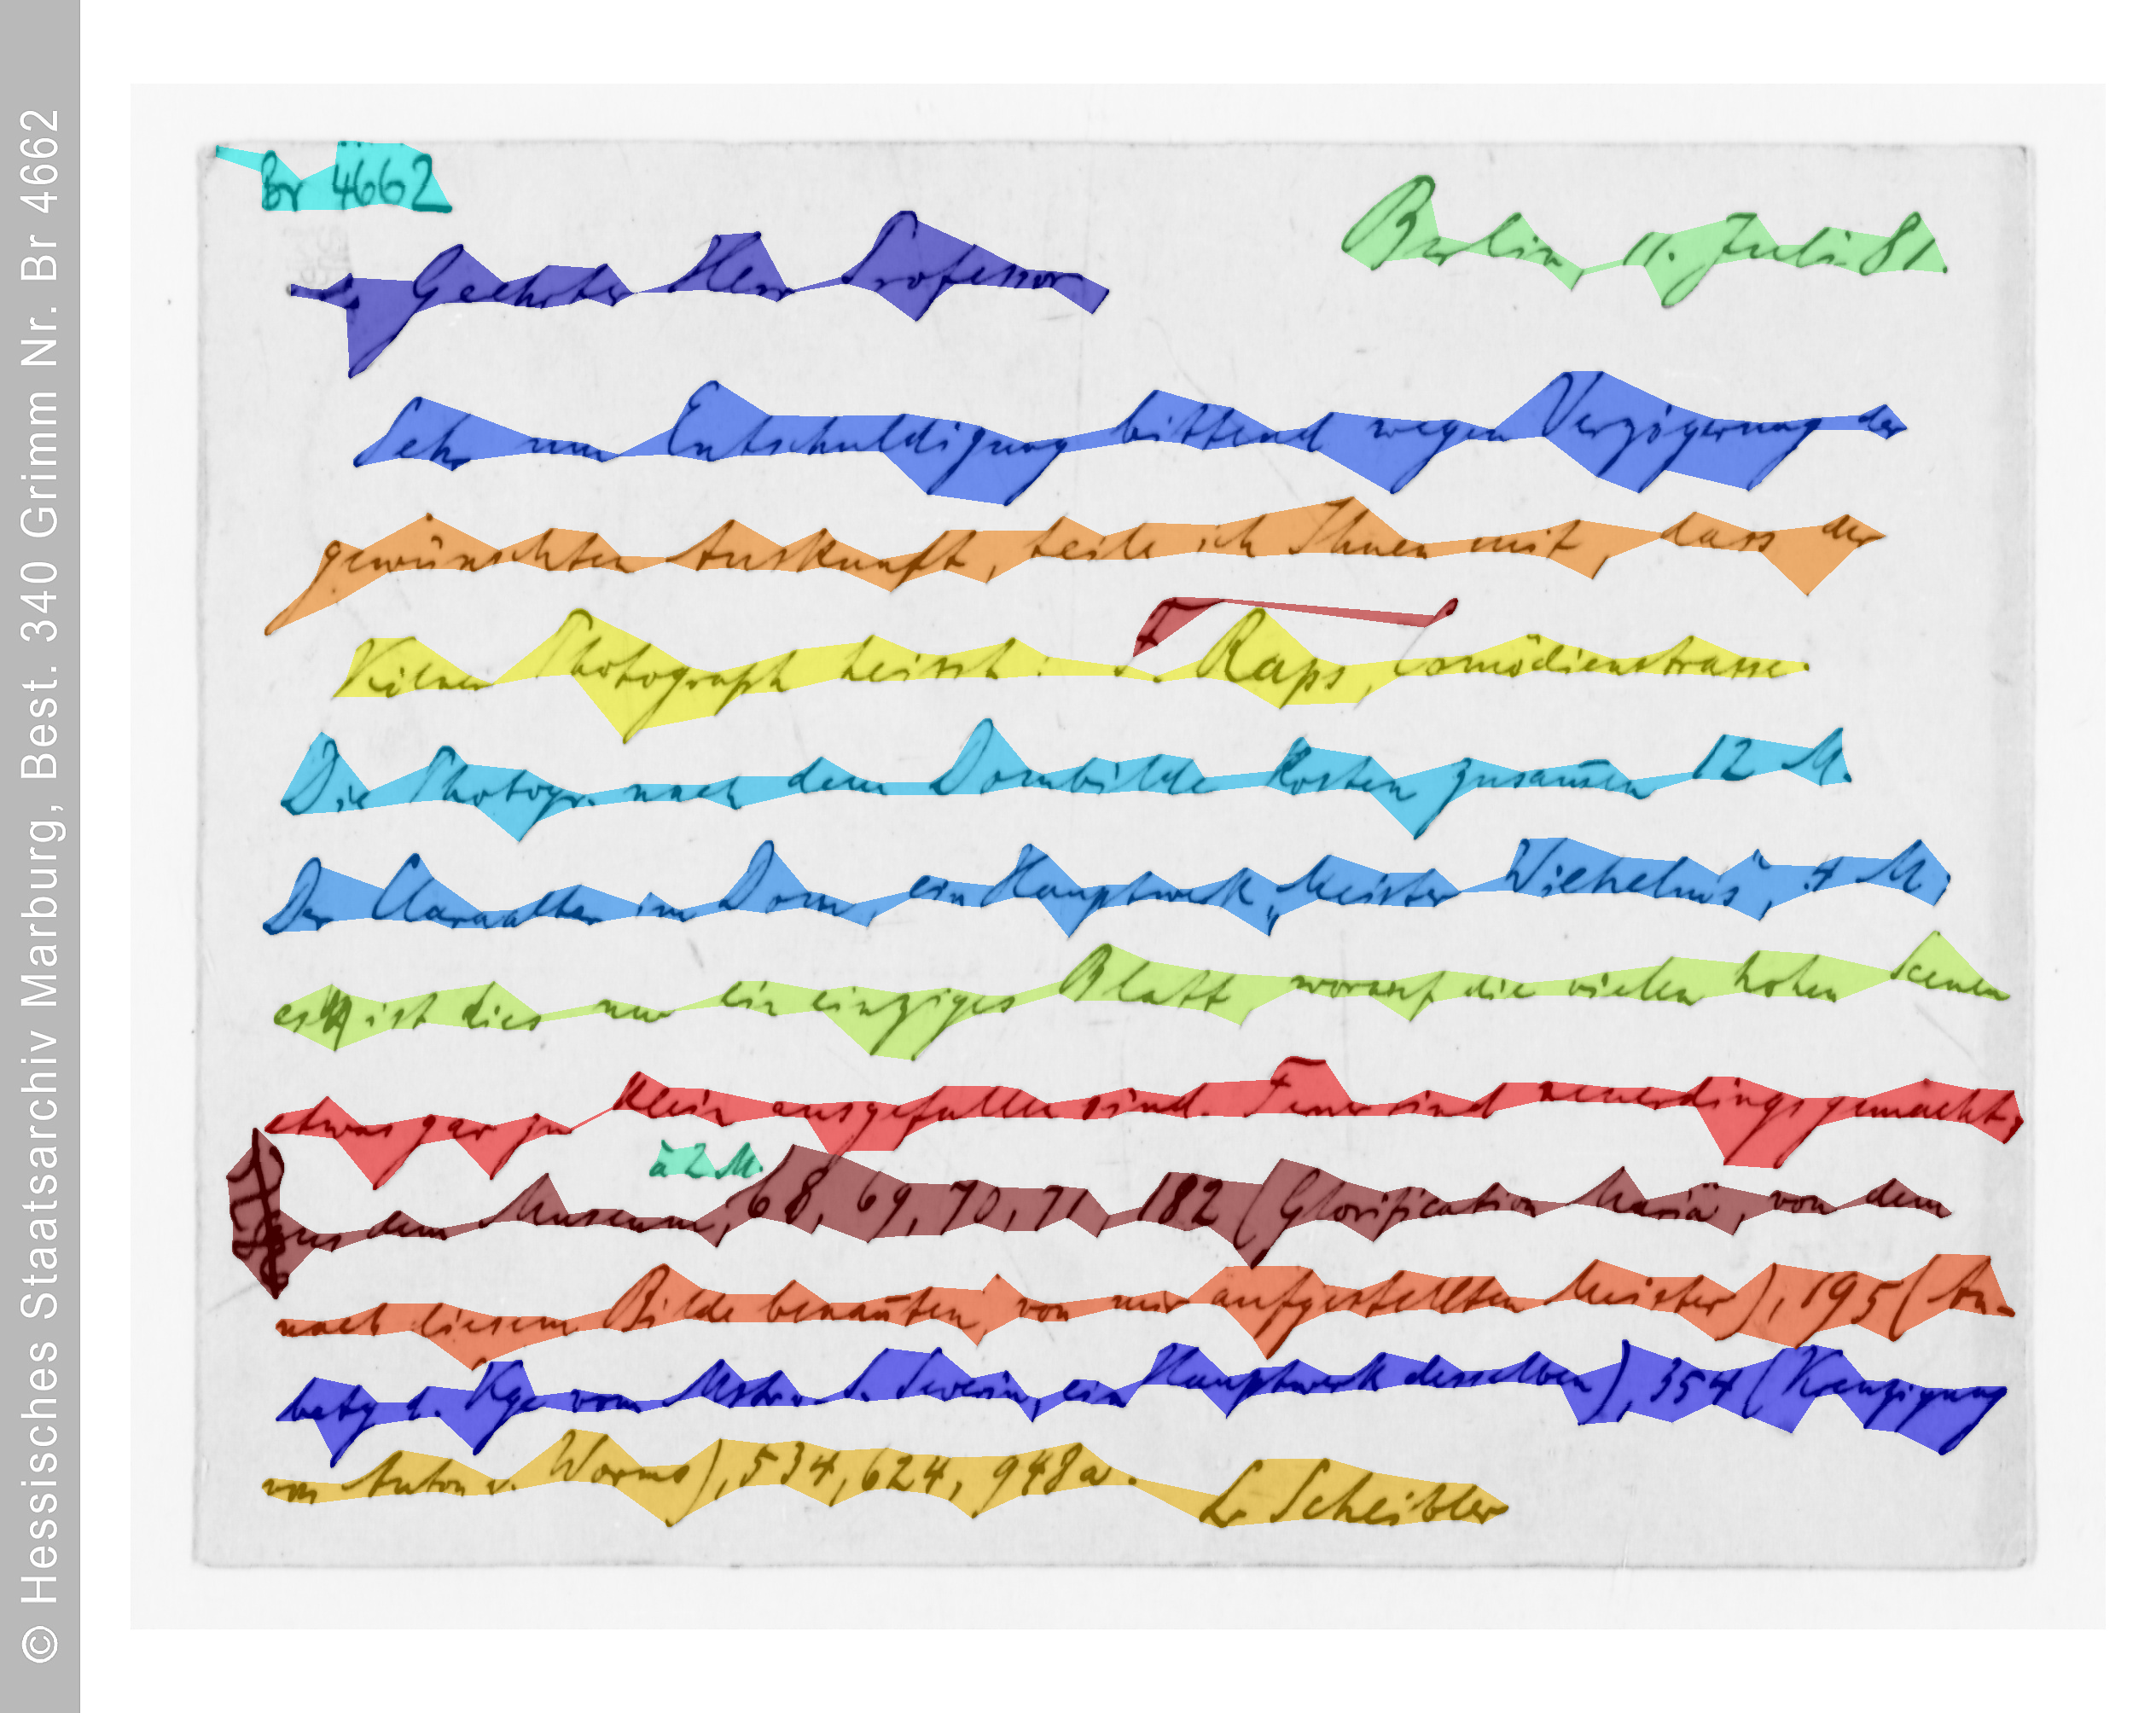 © Hessisches Staatsarchiv Marburg, Best. 340 Grimm Nr. Br 4662
Br 4662
Berlin, 11. Juli 81.
Geehrter Herr Professor
Sehr um Entschuldigung bittend wegen Verzögerung der
gewünschten Auskunft, teile ich Ihnen mit, dass der
Kölner Photograph heisst: T. Raps, Comödienstrasse.
Die Photogr. nach dem Dombilde kosten zusam̅en 12 M.
Der Claraaltar im Dom, ein Hauptwerk „Meister Wilhelms", 4 M;
es ist dies nur ein einziges Blatt, worauf die vielen hohen Scenen
etwas gar zu klein ausgefallen sind. Ferner sind neuerdings gemacht,
à 2 M.
aus dem Museum, 68, 69, 70, 71, 182 (Glorification Mariä, von dem
nach diesem Bilde benan̅ten, von mir aufgestellten Meister), 195 (An-
betg d. Kge vom Mstr v. S. Severin, ein Hauptwerk desselben), 354 (Kreuzigung
von Anton v. Worms), 534, 624, 948a. L. Scheibler